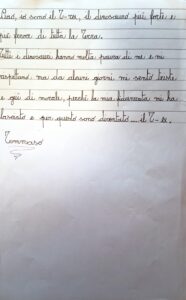 Ciao, io sono il T-rex, il dinosauro più forte e
più feroce di tutta la Terra.
Tutti i dinosauri hanno molta paura di me e mi
rispettano, ma da alcuni giorni mi sento triste
e giù di morale, perché la mia fidanzata mi ha
lasciato e per questo sono diventato... il T-ex.
Tommaso